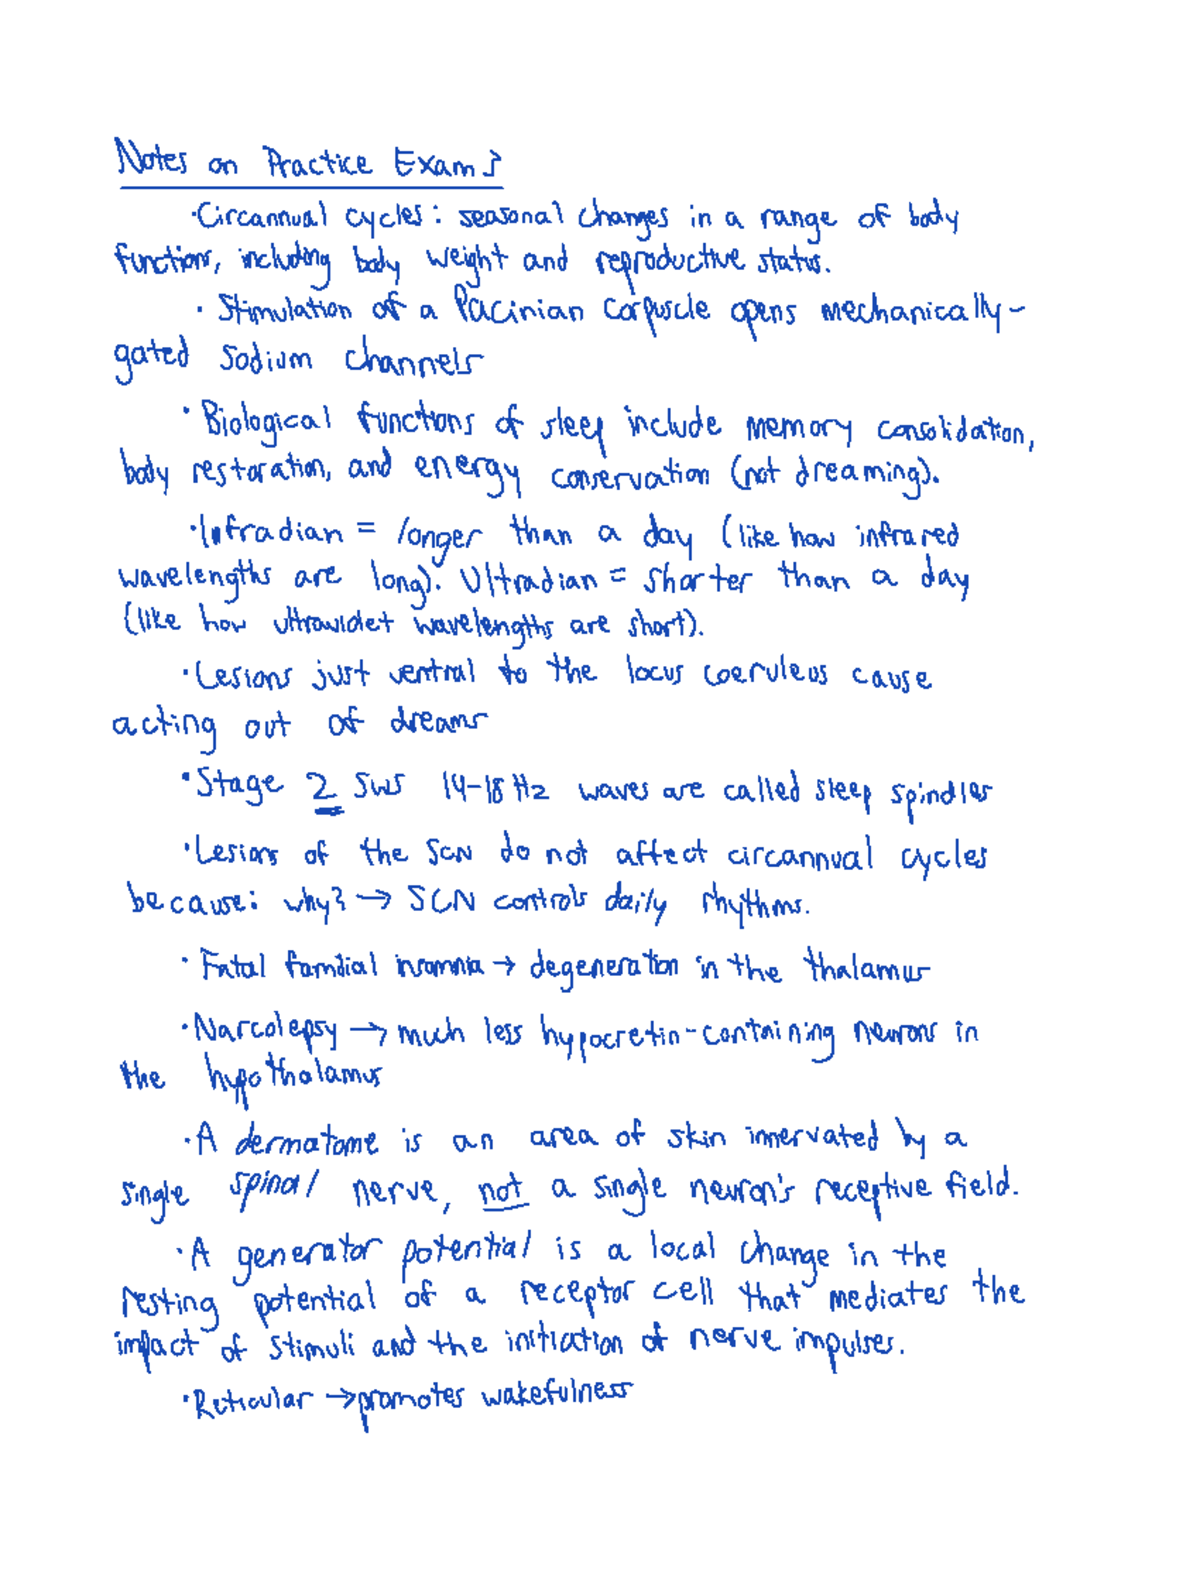 Notes on Practice Exam 3
·Circannual cycles: seasonal changes in a range of body
functions, including body weight and reproductive status.
· Stimulation of a Pacinian corpuscle opens mechanically-
gated sodium channels
· Biological functions of sleep include memory consolidation,
body restoration, and energy conservation (not dreaming).
·Infradian = longer than a day (like how infrared
wavelengths are long). Ultradian = shorter than a day
(like how ultraviolet wavelengths are short).
·Lesions just ventral to the locus coeruleus cause
acting out of dreams
·Stage 2 SWS 14-18 Hz waves are called sleep spindles
·Lesions of the SCN do not affect circannual cycles
because: why? → SCN controls daily rhythms.
· Fatal familial insomnia → degeneration in the thalamus
·Narcolepsy → much less hypocretin-containing neurons in
the hypothalamus
·A dermatome is an area of skin innervated by a
single spinal nerve, not a single neuron's receptive field.
·A generator potential is a local change in the
resting potential of a receptor cell that mediates the
impact of stimuli and the initiation of nerve impulses.
·Reticular → promotes wakefulness